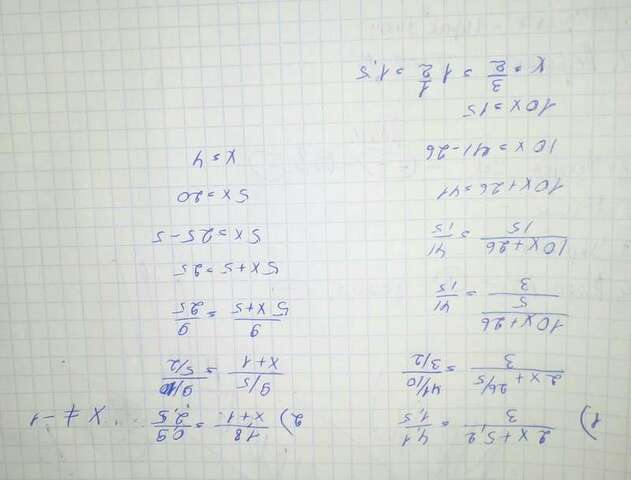 1) (2x+5,2)/3 = 4,1/1,5
(2x+26/5)/3 = (41/10)/(3/2)
((10x+26)/5)/3 = 41/15
(10x+26)/15 = 41/15
10x+26=41
10x=41-26
10x=15
x=3/2=1 1/2=1,5
2) 1,8/(x+1) = 0,9/2,5 x≠-1
(9/5)/(x+1) = (9/10)/(5/2)
9/(5x+5) = 9/25
5x+5=25
5x=25-5
5x=20
x=4